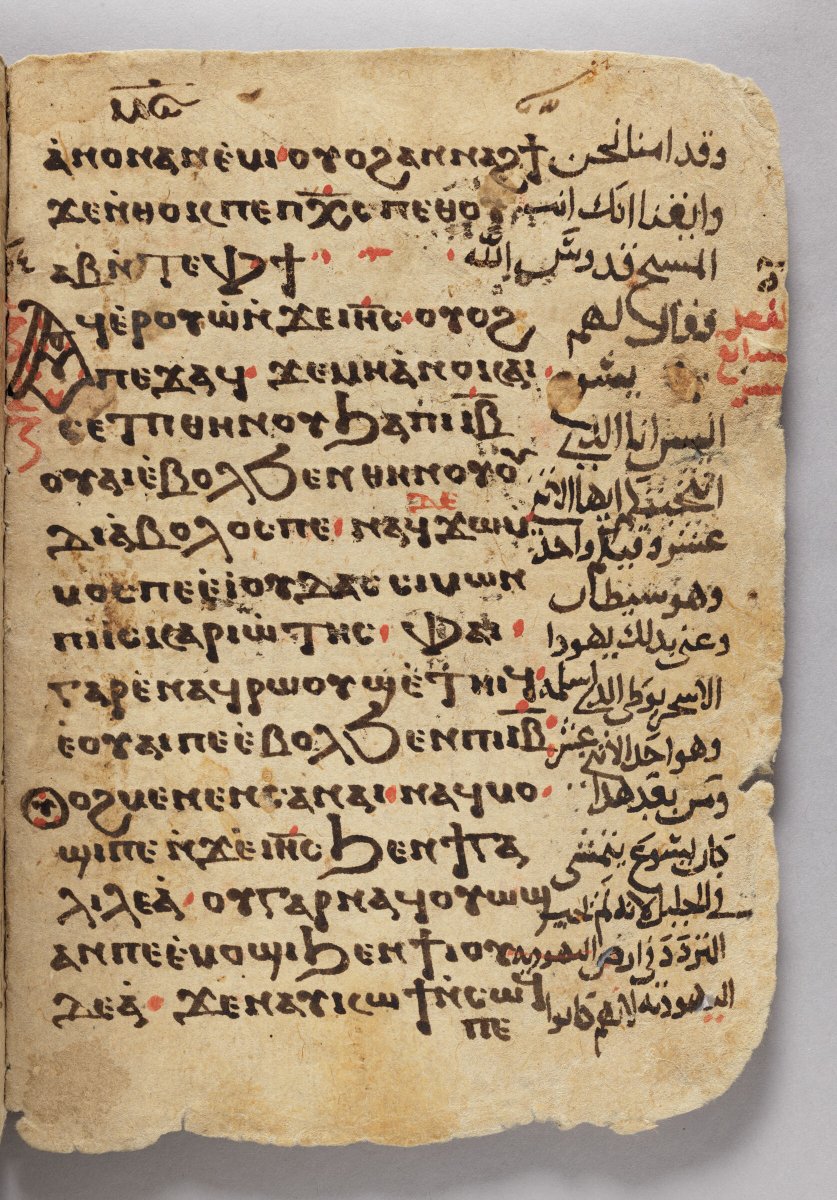 ⲁ̀ⲛⲟⲛ ⲁⲛⲉ̀ⲙⲓ ⲟⲩⲟϩ ⲁⲛⲛⲁϩϯ
ϫⲉ ⲛ̀ⲑⲟⲕ ⲡⲉ ⲡⲭ̅ⲥ ⲡⲉⲑⲟⲩ
ⲁⲃ ⲛ̀ⲧⲉ ⲫϯ
ⲁϥⲉ̀ⲣⲟⲩⲱ̀ ⲛ̀ϫⲉ ⲓⲏ̅ⲥ ⲟⲩⲟϩ
ⲡⲉϫⲁϥ ϫⲉ ⲙⲏ ⲁ̀ⲛⲟⲕ ⲁⲓ
ⲥⲉⲧⲡ ⲑⲏⲛⲟⲩ ϧⲁ ⲡⲓⲓ̅ⲃ̅
ⲟⲩⲁⲓ ⲉ̀ⲃⲟⲗ ϧⲉⲛ ⲑⲏⲛⲟⲩ ⲟⲩ
ⲇⲓⲁ̀ⲃⲟⲗⲟⲥ ⲡⲉ ⲛⲁϥϫⲱ ⲙ̀
ⲇⲉ
ⲙⲟⲥ ⲡⲉ ⲉ̀ⲓⲟⲩⲇⲁⲥ ⲥⲓⲙⲱⲛ
ⲡⲓⲓⲥⲕⲁⲣⲓⲱ̀ⲧⲏⲥ ⲫⲁⲓ
ⲅⲁⲣ ⲉ̀ⲛⲁϥⲣⲱⲟⲩϣ ⲉ̀ⲧⲏⲓϥ
ⲉ̀ⲟⲩⲁⲓ ⲡⲉ ⲉ̀ⲃⲟⲗ ϧⲉⲛ ⲡⲓⲓ̅ⲃ̅
ⲟⲩⲟϩ ⲙⲉⲛⲉⲛⲥⲁ ⲛⲁⲓ ⲛⲁϥⲙⲟ
ϣⲓ ⲡⲉ ⲛ̀ϫⲉ ⲓⲏ̅ⲥ ϧⲉⲛ ϯⲅⲁ
ⲗⲓⲗⲉⲁ̀ ⲟⲩ ⲅⲁⲣ ⲛⲁϥⲟⲩⲱϣ
ⲁⲛ ⲡⲉ ⲉ̀ⲙⲟϣⲓ ϧⲉⲛ ϯⲓⲟⲩ
ⲇⲉⲁ̀ ϫⲉ ⲛⲁⲩⲕⲱϯ ⲛ̀ⲥⲱϥ
ⲡⲉ
وقد امنا نحن
وايقنا انك انت
المسيح قدوس الله
فقال لهم
يسوع
اليس انا الذي
انتخبتكم ايها الاثنى
عشر وفيكم واحد
وهو شيطان
وعنى بذلك يهودا
الاسخريوطي الذي اسلمه
وهو احد الاثنى عشر
ومن بعد هذا
كان يسوع يتمشى
في الجليل لانه لم يحب
التردد في ارض اليهودية
لانهم كانوا